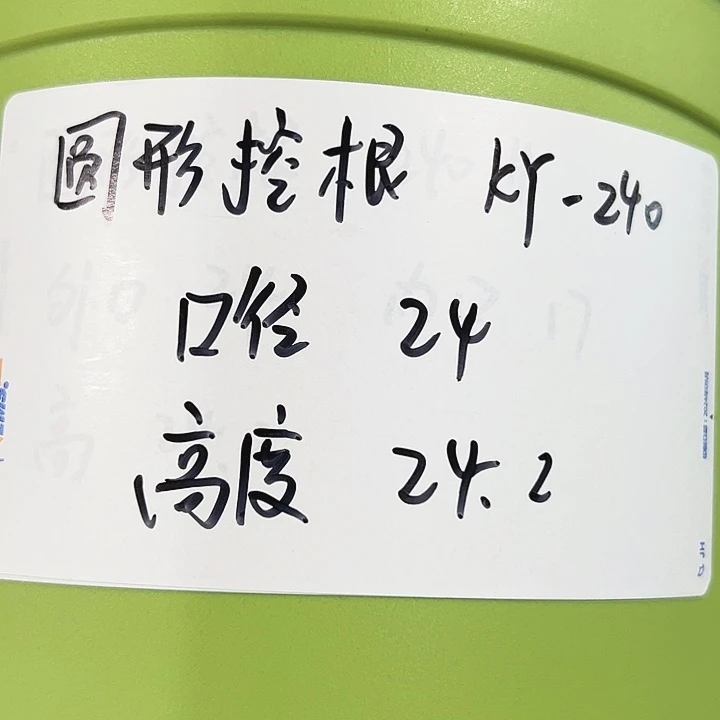 圆形控根 KY-240
口径 24
高度 24.2